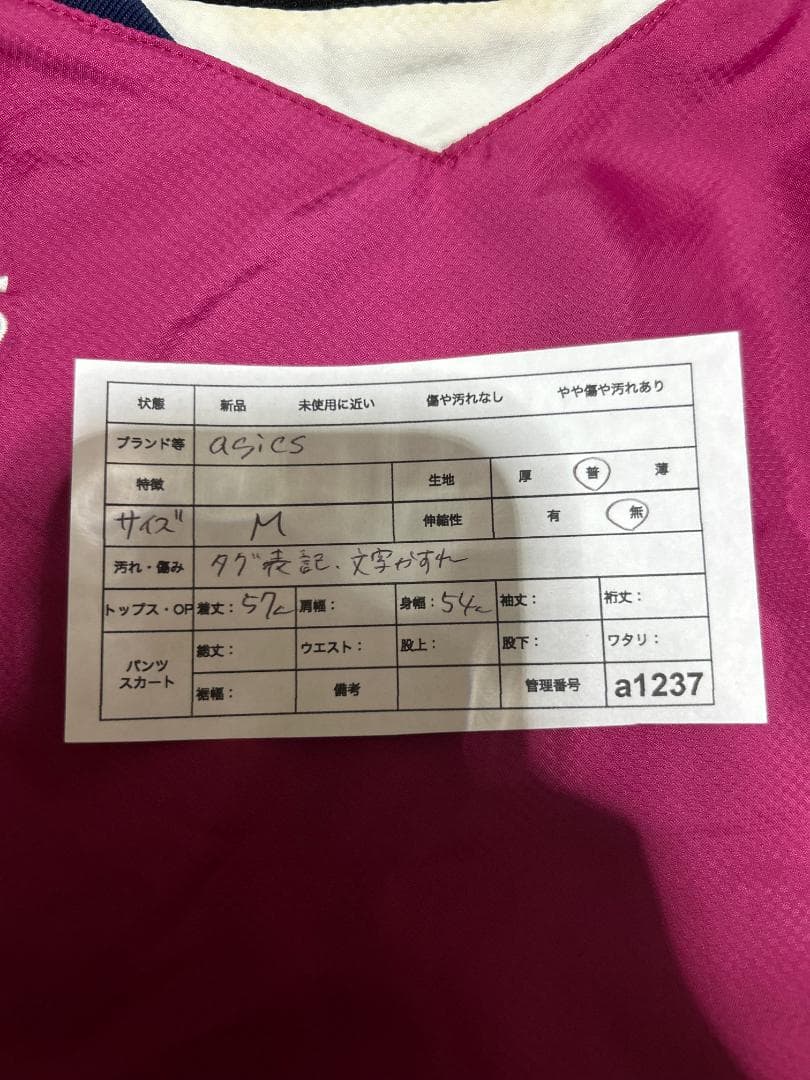 状態 新品 未使用に近い 傷や汚れなし やや傷や汚れあり
ブランド等 asics
特徴 生地 厚 普 薄
サイズ M 伸縮性 有 無
汚れ・傷み タグ表記、文字かすれ
トップス・OP 着丈：57c 肩幅： 身幅：54c 袖丈： 裄丈：
パンツ スカート 総丈： ウエスト： 股上： 股下： ワタリ：
裾幅： 備考 管理番号 a1237